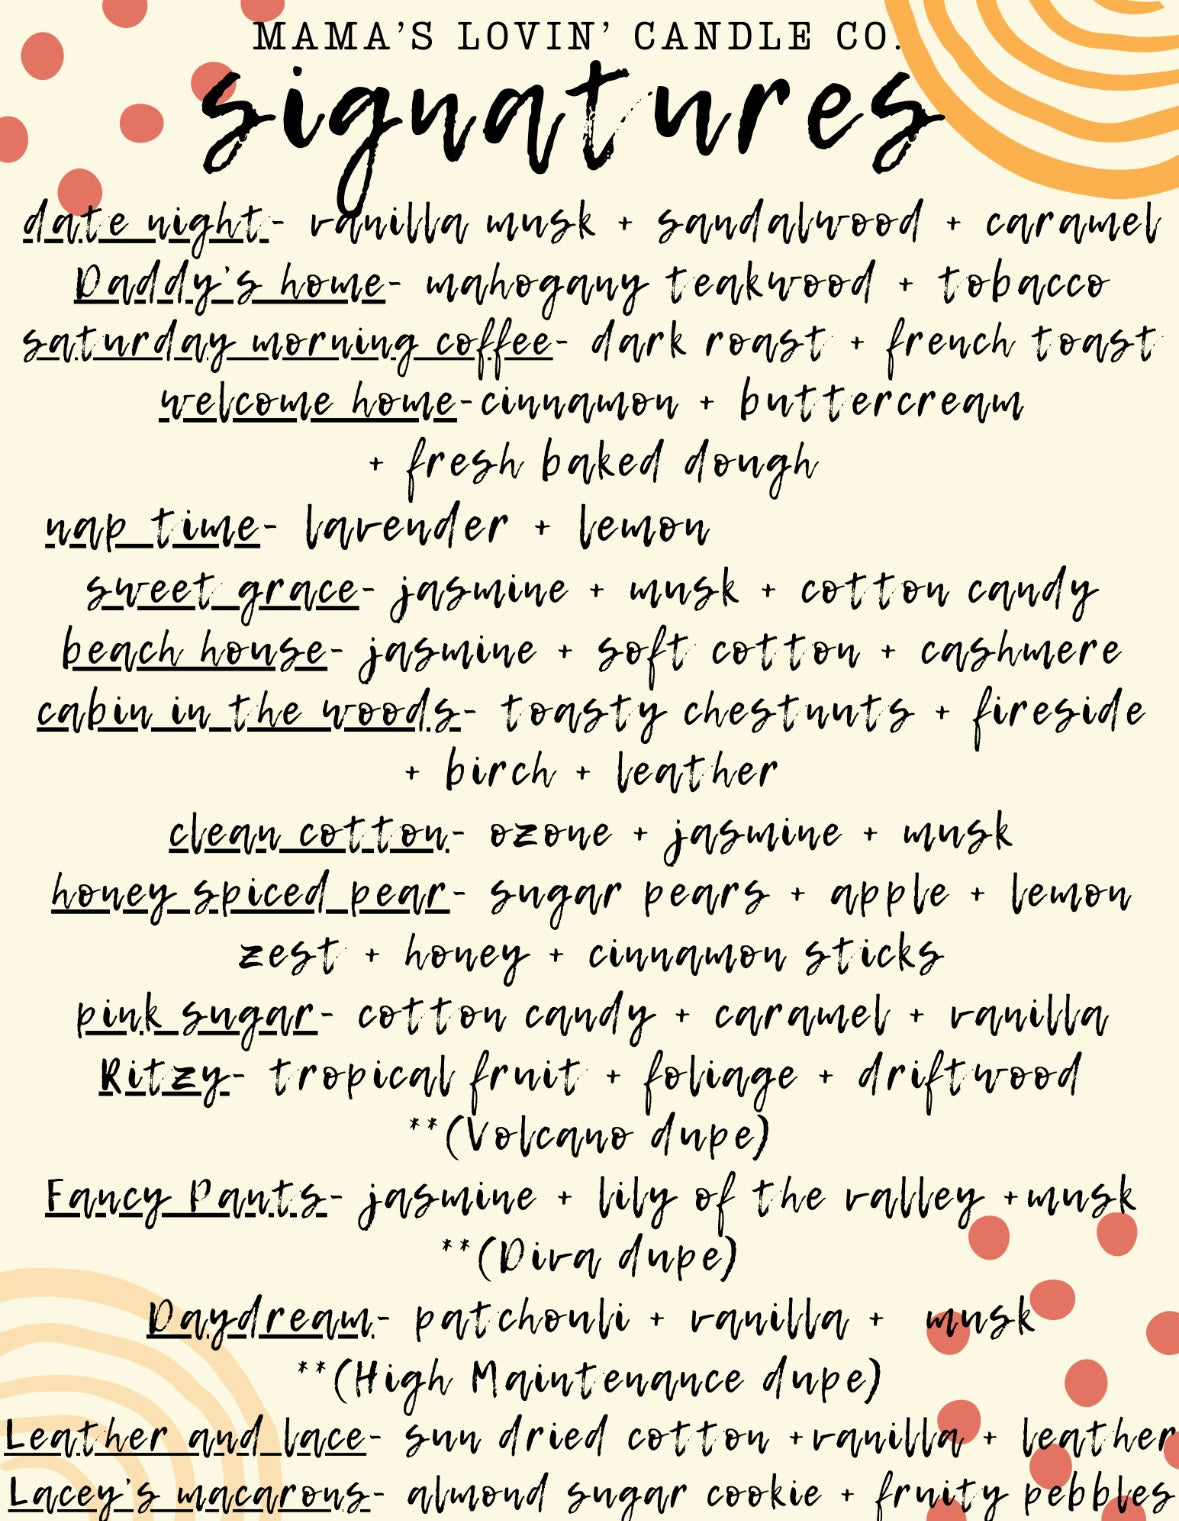 MAMA'S LOVIN' CANDLE CO.
signatures
date night- vanilla musk + sandalwood + caramel
Daddy's home- mahogany teakwood + tobacco
saturday morning coffee- dark roast + french toast
welcome home-cinnamon + buttercream
+ fresh baked dough
nap time- lavender + lemon
sweet grace- jasmine + musk + cotton candy
beach house- jasmine + soft cotton + cashmere
cabin in the woods- toasty chestnuts + fireside
+ birch + leather
clean cotton- ozone + jasmine + musk
honey spiced pear- sugar pears + apple + lemon
zest + honey + cinnamon sticks
pink sugar- cotton candy + caramel + vanilla
Ritzy- tropical fruit + foliage + driftwood
**(Volcano dupe)
Fancy Pants- jasmine + lily of the valley +musk
**(Diva dupe)
Daydream- patchouli + vanilla + musk
**(High Maintenance dupe)
Leather and lace- sun dried cotton +vanilla + leather
Lacey's macarons- almond sugar cookie + fruity pebbles